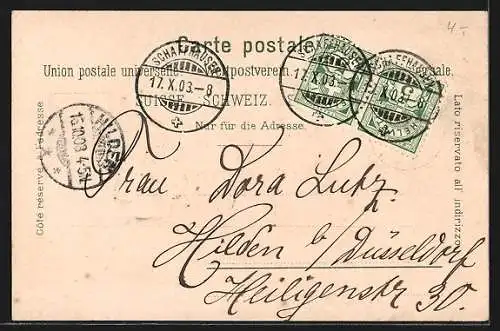 4.-
Carte postale.
Union postale universelle. Weltpostverein.
SUISSE. SCHWEIZ.
Nur für die Adresse.
Côté réservé à l'adresse
Lato riservato all'indirizzo
SCHAFFHAUSEN
17.X.03.-8
SCHAFFHAUSEN
17.X.03.-8
SCHAFFHAUSEN
17.X.03.-8
HILDEN
18.10.03. 4-5N
5
Frau Dora Lutz.
Hilden b/Düsseldorf
Heiligenstr 30.